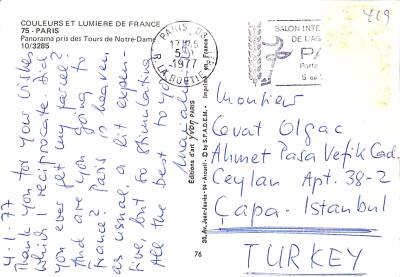 COULEURS ET LUMIERE DE FRANCE
75 - PARIS
Panorama pris des Tours de Notre-Dame
10/3285
4-1-77
Thank you for your wishes
which I reciprocate. Did
you ever get my parcel?
And are you going to
France? Paris is heaven
as usual, a bit expen-
sive, but so stimulating
All the best to you
Éditions d'art yvon PARIS
© by S.P.A.D.E.M. - Imprimé en France
30, Av. Jean-Jaurès - 94 - Arcueil
76
PARIS. 08
17H15
5-1
1977
R. LA BOETIE (8e)
SALON INTE
DE L'AG
PA
Porte
6 au
419
Monsieur
Cevat Olgac
Ahmet Pasa Vefik Cad.
Ceylan Apt. 38-2
Çapa - Istanbul
TURKEY